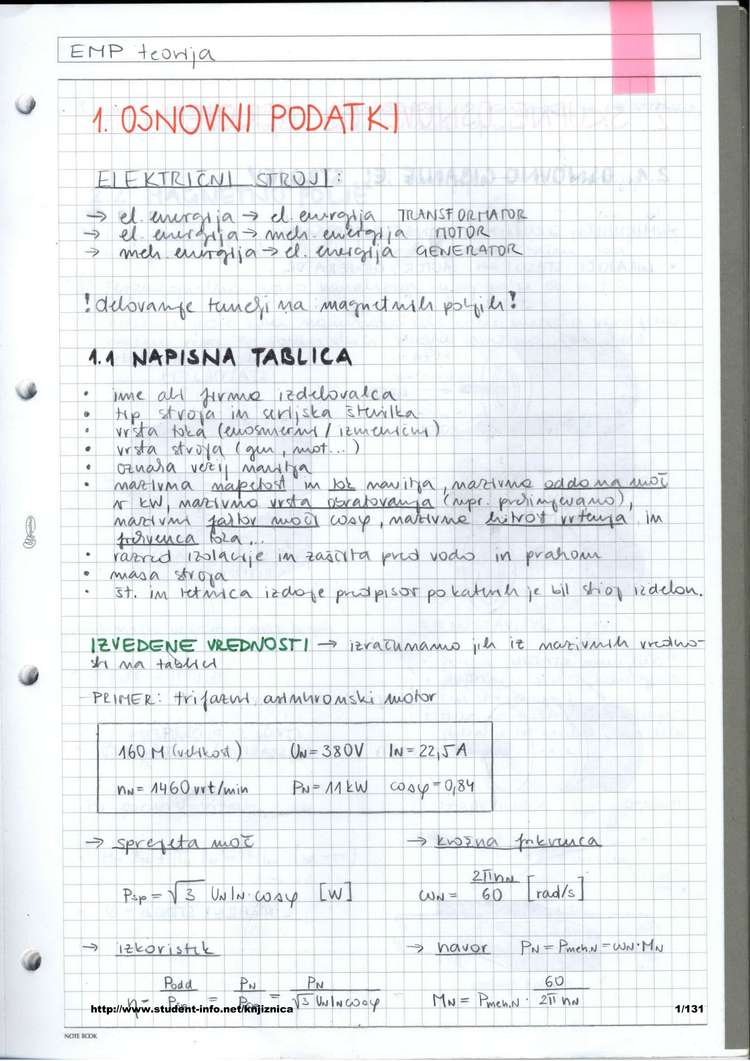 EMP teorija
1. OSNOVNI PODATKI
ELEKTRIČNI STROJI:
→ el. energija → el. energija TRANSFORMATOR
→ el. energija → meh. energija MOTOR
→ meh. energija → el. energija GENERATOR
! delovanje temelji na magnetnih poljih!
1.1 NAPISNA TABLICA
• ime ali firma izdelovalca
• tip stroja in serijska številka
• vrsta toka (enosmerni / izmenični)
• vrsta stroja (gen, mot...)
• oznaka vezij navitja
• nazivna napetost in tok navitja, nazivna oddana moč
v kW, nazivna vrsta obratovanja (npr. prekinjevano),
nazivni faktor moči cosφ, nazivna hitrost vrtenja in
frekvenca toka...
• razred izolacije in zaščita pred vodo in prahom
• masa stroja
• št. in letnica izdaje predpisov po katerih je bil stroj izdelan.
IZVEDENE VREDNOSTI → izračunamo jih iz nazivnih vredno-
sti na tablici
PRIMER: trifazni asinhronski motor
160 M (velikost) UN = 380V IN = 22,5A
nN = 1460 vrt/min PN = 11 kW cosφ = 0,84
→ sprejeta moč → krožna frekvenca
Psp = √3 UN IN · cosφ [W] ωN = 2πnN / 60 [rad/s]
→ izkoristek → navor PN = Pmeh.N = ωN · MN
η = Podd / Psp = PN / Psp = PN / √3 UN IN cosφ MN = Pmeh.N · 60 / 2π nN
http://www.student-info.net/knjiznica 1/131
NOTE BOOK